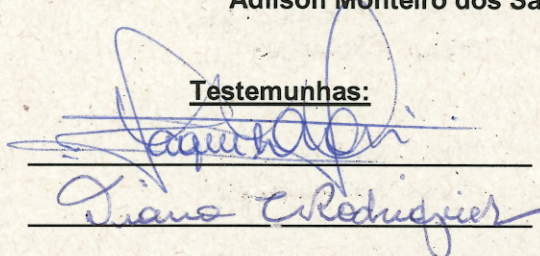 Adilson Monteiro dos Sa
Testemunhas:
Diana C Rodriguez